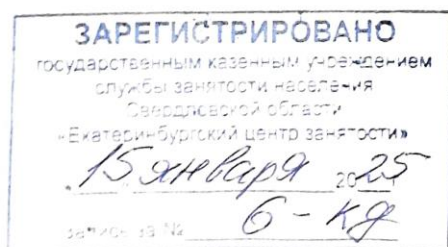 ЗАРЕГИСТРИРОВАНО
государственным казенным учреждением
службы занятости населения
Свердловской области
«Екатеринбургский центр занятости»
"15" января 2025 г
запись за № 6-кд